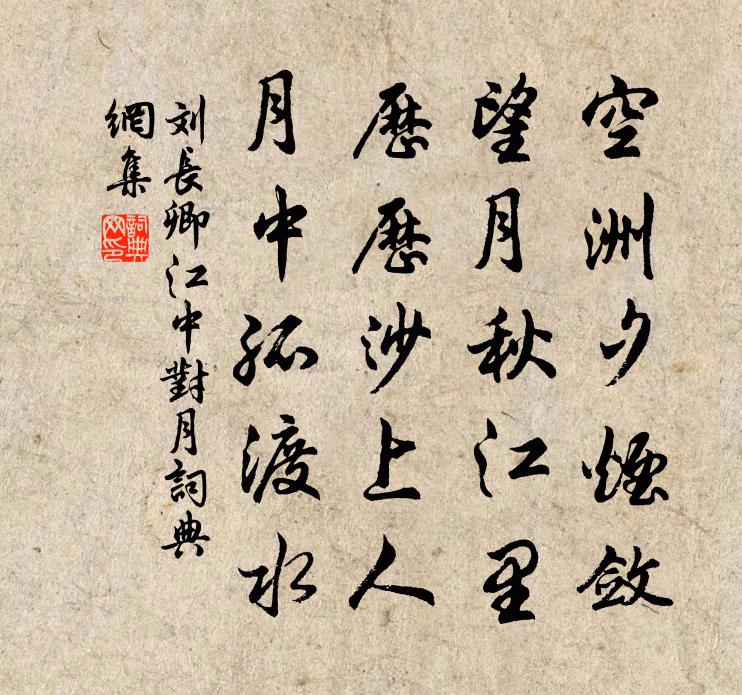 空洲夕煙敛
望月秋江里
歷歷沙上人
月中孤渡水
刘長卿江中對月詞典
網集
詞典網印